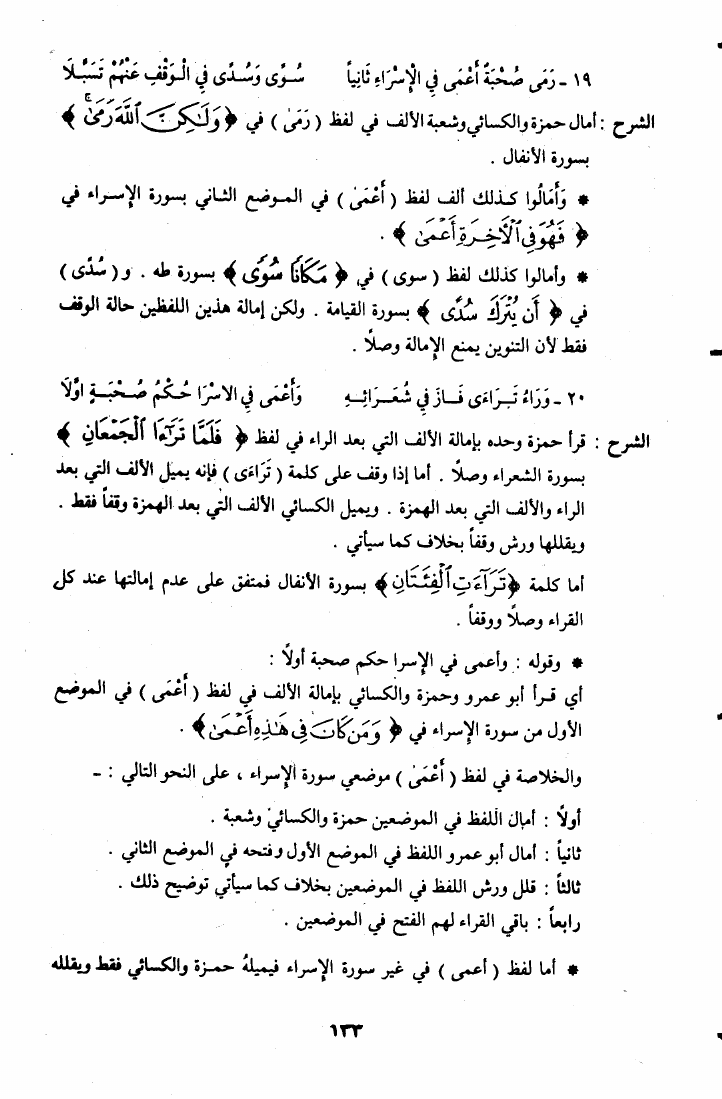 ١٩ - رَمَى صُحْبَةٌ أَعْمَى فِي الْإِسْرَاءِ ثَانِياً سُوًى وَسُدًى فِي الْوَقْفِ عَنْهُمْ تَسَبَّلَا
الشرح : أمال حمزة والكسائي وشعبة الألف في لفظ ( رَمَىٰ ) في ﴿ وَلَٰكِنَّ ٱللَّهَ رَمَىٰ ۚ ﴾
بسورة الأنفال .
* وَأَمَالُوا كذلك ألف لفظ ( أَعْمَىٰ ) في الموضع الثاني بسورة الإسراء في
﴿ فَهُوَ فِي ٱلْأَخِرَةِ أَعْمَىٰ ﴾ .
* وأمالوا كذلك لفظ ( سوى ) في ﴿ مَكَانًا سُوًى ﴾ بسورة طه . و ( سُدًى )
في ﴿ أَن يُتْرَكَ سُدًى ﴾ بسورة القيامة . ولكن إمالة هذين اللفظين حالة الوقف
فقط لأن التنوين يمنع الإمالة وصلاً .
٢٠ - وَرَاءُ تَرَاءَى فَازَ فِي شُعَرَائِهِ وَأَعْمَى فِي الاسْرَا حُكْمُ صُحْبَةٍ اوَّلَا
الشرح : قرأ حمزة وحده بإمالة الألف التي بعد الراء في لفظ ﴿ فَلَمَّا تَرَٰٓءَا ٱلْجَمْعَانِ ﴾
بسورة الشعراء وصلاً . أما إذا وقف على كلمة ( تَرَاءَى ) فإنه يميل الألف التي بعد
الراء والألف التي بعد الهمزة . ويميل الكسائي الألف التي بعد الهمزة وقفاً فقط .
ويقللها ورش وقفاً بخلاف كما سيأتي .
أما كلمة ﴿ تَرَآءَتِ ٱلْفِئَتَانِ ﴾ بسورة الأنفال فمتفق على عدم إمالتها عند كل
القراء وصلاً ووقفاً .
* وقوله : وأعمى في الإسرا حكم صحبة أولاً :
أي قرأ أبو عمرو وحمزة والكسائي بإمالة الألف في لفظ ( أَعْمَى ) في الموضع
الأول من سورة الإسراء في ﴿ وَمَن كَانَ فِي هَٰذِهِ أَعْمَىٰ ﴾ .
والخلاصة في لفظ ( أَعْمَىٰ ) موضعي سورة الإسراء ، على النحو التالي : -
أولاً : أمال اللفظ في الموضعين حمزة والكسائي وشعبة .
ثانياً : أمال أبو عمرو اللفظ في الموضع الأول وفتحه في الموضع الثاني .
ثالثاً : قلل ورش اللفظ في الموضعين بخلاف كما سيأتي توضيح ذلك .
رابعاً : باقي القراء لهم الفتح في الموضعين .
* أما لفظ ( أعمى ) في غير سورة الإسراء فيميلهُ حمزة والكسائي فقط ويقلله
١٣٣